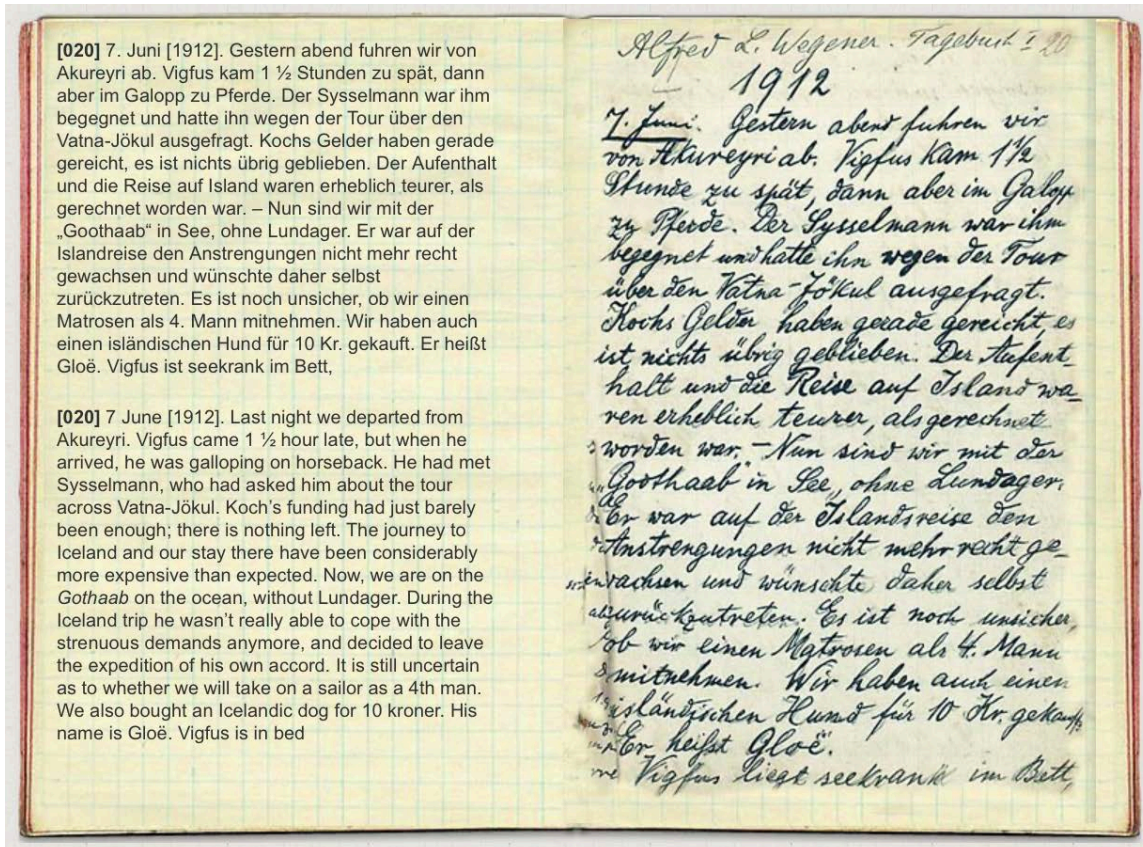 [020] 7. Juni [1912]. Gestern abend fuhren wir von
Akureyri ab. Vigfus kam 1 ½ Stunden zu spät, dann
aber im Galopp zu Pferde. Der Sysselmann war ihm
begegnet und hatte ihn wegen der Tour über den
Vatna-Jökul ausgefragt. Kochs Gelder haben gerade
gereicht, es ist nichts übrig geblieben. Der Aufenthalt
und die Reise auf Island waren erheblich teurer, als
gerechnet worden war. – Nun sind wir mit der
„Goothaab“ in See, ohne Lundager. Er war auf der
Islandreise den Anstrengungen nicht mehr recht
gewachsen und wünschte daher selbst
zurückzutreten. Es ist noch unsicher, ob wir einen
Matrosen als 4. Mann mitnehmen. Wir haben auch
einen isländischen Hund für 10 Kr. gekauft. Er heißt
Gloë. Vigfus ist seekrank im Bett,
[020] 7 June [1912]. Last night we departed from
Akureyri. Vigfus came 1 ½ hour late, but when he
arrived, he was galloping on horseback. He had met
Sysselmann, who had asked him about the tour
across Vatna-Jökul. Koch’s funding had just barely
been enough; there is nothing left. The journey to
Iceland and our stay there have been considerably
more expensive than expected. Now, we are on the
Gothaab on the ocean, without Lundager. During the
Iceland trip he wasn’t really able to cope with the
strenuous demands anymore, and decided to leave
the expedition of his own accord. It is still uncertain
as to whether we will take on a sailor as a 4th man.
We also bought an Icelandic dog for 10 kroner. His
name is Gloë. Vigfus is in bed
Alfred L. Wegener. Tagebuch I 20
1912
7. Juni. Gestern abend fuhren wir
von Akureyri ab. Vigfus kam 1½
Stunde zu spät, dann aber im Galopp
zu Pferde. Der Sysselmann war ihm
begegnet und hatte ihn wegen der Tour
über den Vatna-Jökul ausgefragt.
Kochs Gelder haben gerade gereicht, es
ist nichts übrig geblieben. Der Aufent-
halt und die Reise auf Island wa-
ren erheblich teurer, als gerechnet
worden war. – Nun sind wir mit der
„Godthaab“ in See, ohne Lundager.
Er war auf der Islandsreise den
Anstrengungen nicht mehr recht ge-
wachsen und wünschte daher selbst
zurückzutreten. Es ist noch unsicher,
ob wir einen Matrosen als 4. Mann
mitnehmen. Wir haben auch einen
isländischen Hund für 10 Kr. gekauft.
Er heißt Gloë.
Vigfus liegt seekrank im Bett,